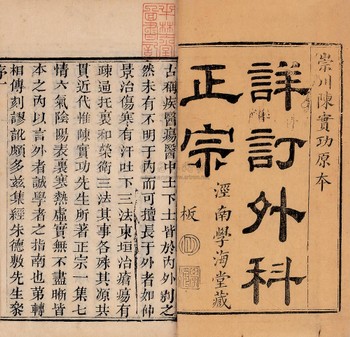 崇川陳實功原本
詳訂外科
正宗
涇南學海堂藏
板
古稱疾醫瘍醫中士下士皆於內外判之
然未有不明于內而可擅長于外者如仲
景治傷寒有汗吐下三法東垣治瘡瘍有
疎通托裏和榮衛三法其事各殊其源共
貫近代惟陳實功先生所著正宗一集七
情六氣陰陽表裏寒熱虛實無不盡晰皆
本之內以言外者誠學者之指南也第轉
相傳刻謬訛頗多茲集經朱德敷先生叅
序一